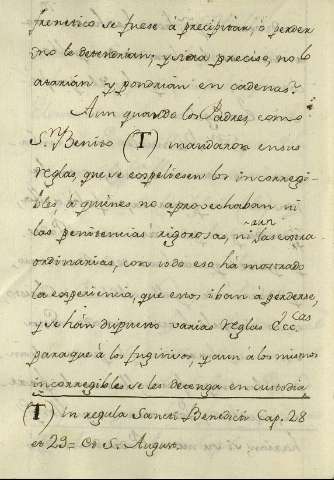 frenetico se fuese à precipitar, ò perder
no le detendrian; y si era preciso, no lo
atarian y pondrian en cadenas?
Aun quando los Padres, como
S.n Benito (T) mandaron en sus
reglas, que se expeliesen los incorregi
bles à quienes no aprovechaban ni
las penitencias rigorosas, ni aun las extra
ordinarias, con todo eso ha mostrado
la experiencia, que estos iban à perderse,
y se han dispuesto varias reglas Ecc.cas
para que à los fugitivos, y aun à los mismos
incorregibles se les detenga en custodia
(T) In regula Sancti Benedicti Cap. 28
et 29= et S. August.